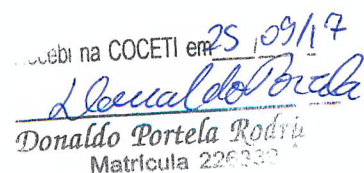 ebi na COCETI em 25/09/17
Donaldo Portela
Donaldo Portela Rodri
Matrícula 226339